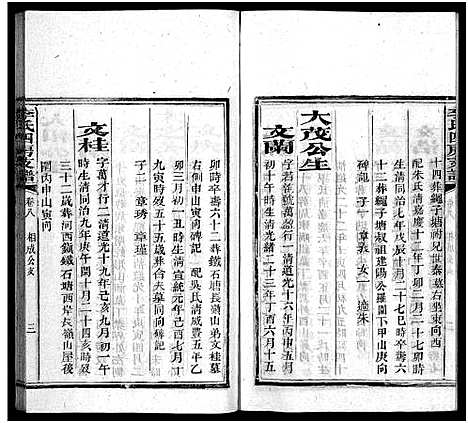 李氏四房支譜
十四葬繩子塘兄世泰墓右坐東向西
配朱氏清嘉慶十二年丁卯三月二十七卯時
生清同治七年戊辰十一月二十七巳時卒壽六
十二葬繩子塘叔祖建陽公園下甲山庚向
碑記 子一 章義 女一 適朱
大茂公生
文蘭
清道光十六年丙申五月
時生清光緒二十三年丁酉六月十五
時卒壽六十二葬鐵石塘長嶺山弟文桂墓
右側申山寅向碑記 配吳氏清咸豐五年乙
卯三月初一丑時生清宣統元年己酉七月
九寅時歿壽五十五歲葬合夫墓同向碑記
子二 章琇 章瑾
文桂
字萬才行二清道光十九年己亥九月初一午
時生清同治九年庚午閏十月二十四亥時歿
三十二歲葬河西鎮鐵石塘西岸長嶺山屋後
園內申山寅向
李氏四房支譜
卷八
相成公支
三